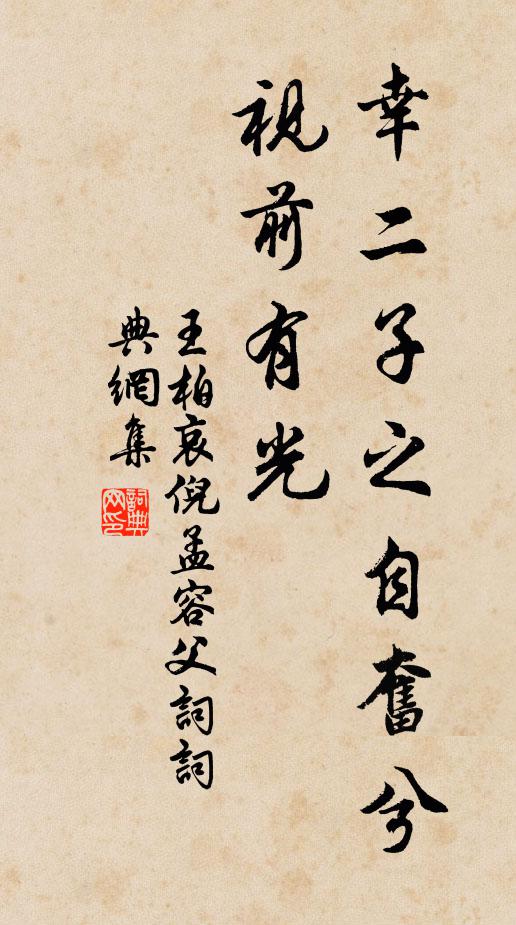 幸二子之自奮兮
視前有光
王柏哀倪孟容父詞詞
典網集
詞典网印